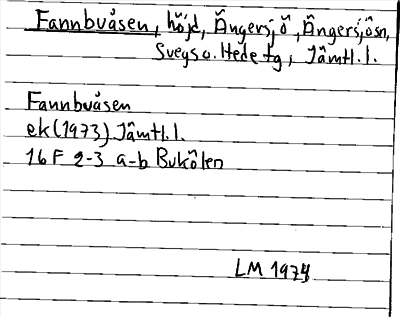 Fannbuåsen, höjd, Ängersj,ö, Ängersj,ösn,
Svegs o. Hede tg, Jämtl.l.
Fannbuåsen
ek (1973) Jämtl.l.
16 F 2-3 a-b Bukölen
LM 1974